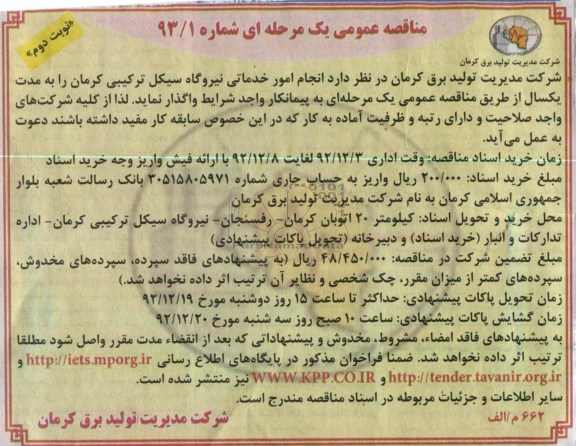 مناقصه عمومی یک مرحله ای شماره ۹۳/۱
«نوبت دوم»
شرکت مدیریت تولید برق کرمان
شرکت مدیریت تولید برق کرمان در نظر دارد انجام امور خدماتی نیروگاه سیکل ترکیبی کرمان را به مدت
یکسال از طریق مناقصه عمومی یک مرحله‌ای به پیمانکار واجد شرایط واگذار نماید. لذا از کلیه شرکت‌های
واجد صلاحیت و دارای رتبه و ظرفیت آماده به کار که در این خصوص سابقه کار مفید داشته باشند دعوت
به عمل می‌آید.
زمان خرید اسناد مناقصه: وقت اداری ۹۲/۱۲/۳ لغایت ۹۲/۱۲/۸ با ارائه فیش واریز وجه خرید اسناد
مبلغ خرید اسناد: ۲۰۰/۰۰۰ ریال واریز به حساب جاری شماره ۳۰۵۱۵۸۰۵۹۷۱ بانک رسالت شعبه بلوار
جمهوری اسلامی کرمان به نام شرکت مدیریت تولید برق کرمان
محل خرید و تحویل اسناد: کیلومتر ۲۰ اتوبان کرمان- رفسنجان- نیروگاه سیکل ترکیبی کرمان- اداره
تدارکات و انبار (خرید اسناد) و دبیرخانه (تحویل پاکات پیشنهادی)
مبلغ تضمین شرکت در مناقصه: ۴۸/۴۵۰/۰۰۰ ریال (به پیشنهادهای فاقد سپرده، سپرده‌های مخدوش،
سپرده‌های کمتر از میزان مقرر، چک شخصی و نظایر آن ترتیب اثر داده نخواهد شد.)
زمان تحویل پاکات پیشنهادی: حداکثر تا ساعت ۱۵ روز دوشنبه مورخ ۹۲/۱۲/۱۹
زمان گشایش پاکات پیشنهادی: ساعت ۱۰ صبح روز سه شنبه مورخ ۹۲/۱۲/۲۰
به پیشنهادهای فاقد امضاء، مشروط، مخدوش و پیشنهاداتی که بعد از انقضاء مدت مقرر واصل شود مطلقا
ترتیب اثر داده نخواهد شد. ضمنا فراخوان مذکور در پایگاه‌های اطلاع رسانی http://iets.mporg.ir و
http://tender.tavanir.org.ir و WWW.KPP.CO.IR نیز منتشر شده است.
سایر اطلاعات و جزئیات مربوطه در اسناد مناقصه مندرج است.
۶۶۲ م/الف
شرکت مدیریت تولید برق کرمان